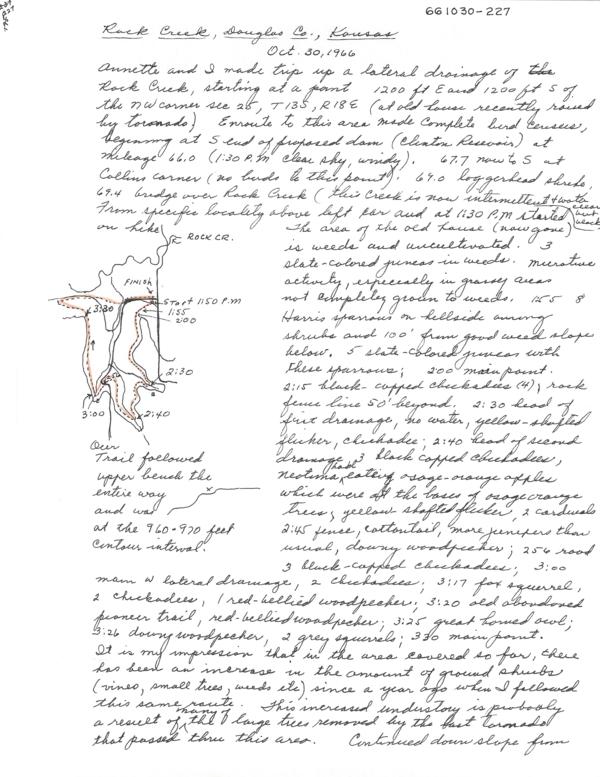 661030-227
Rock Creek, Douglas Co., Kansas
Oct. 30, 1966
Annette and I made trip up a lateral drainage of the
Rock Creek, starting at a point 1200 ft E and 1200 ft S of
the NW corner sec 25, T13S, R18E (at old house recently razed
by tornado) Enroute to this area made complete bird census,
beginning at S end of proposed dam (Clinton Resevoir) at
mileage 66.0 (1:30 P.M clear sky, windy). 67.7 now to S at
Collins corner (no birds to this point). 69.0 loggerhead shrike,
69.4 bridge over Rock Creek (this Creek is now intermittent + water
clear but black)
From specific locality above left car and at 1:30 P.M started
on hike
The area of the old house (now gone)
is weeds and uncultivated. 3
slate-colored juncos in weeds. Microtine
activity, especially in grassy areas
not completely grown to weeds. 155 8
Harris sparrows on hillside among
shrubs and 100' from good weed slope
below. 5 slate-colored juncos with
these sparrows; 200 main point.
2:15 black-capped chickadees (4); rock
fence line 50' beyond. 2:30 head of
first drainage, no water, yellow-shafted
flicker, chickadee; 2:40 head of second
drainage, 3 black capped chickadees,
neotoma had eaten osage-orange apples
which were at the bases of osage orange
trees; yellow shafted flicker, 2 cardinals
2:45 fence, cottontail, more junipers than
usual, downy woodpecker; 256 road
3 black-capped chickadees; 3:00
ROCK CR.
FINISH
START 1:50 P.M
1:55
2:00
3:30
2:30
3:00
2:40
Over
Trail followed
upper bench the
entire way
and was
at the 960-970 feet
contour interval.
main W lateral drainage, 2 chickadees; 3:17 fox squirrel,
2 chickadees, 1 red-bellied woodpecker; 3:20 old abandoned
pioneer trail, red-bellied woodpecker; 3:25 great horned owl;
3:26 downy woodpecker, 2 grey squirrels; 330 main point.
It is my impression that in the area covered so far, there
has been an increase in the amount of ground shrubs
(vines, small trees, weeds etc) since a year ago when I followed
this same route. This increased understory is probably
a result of many of the large trees removed by the last tornado
that passed thru this area. Continued down slope from